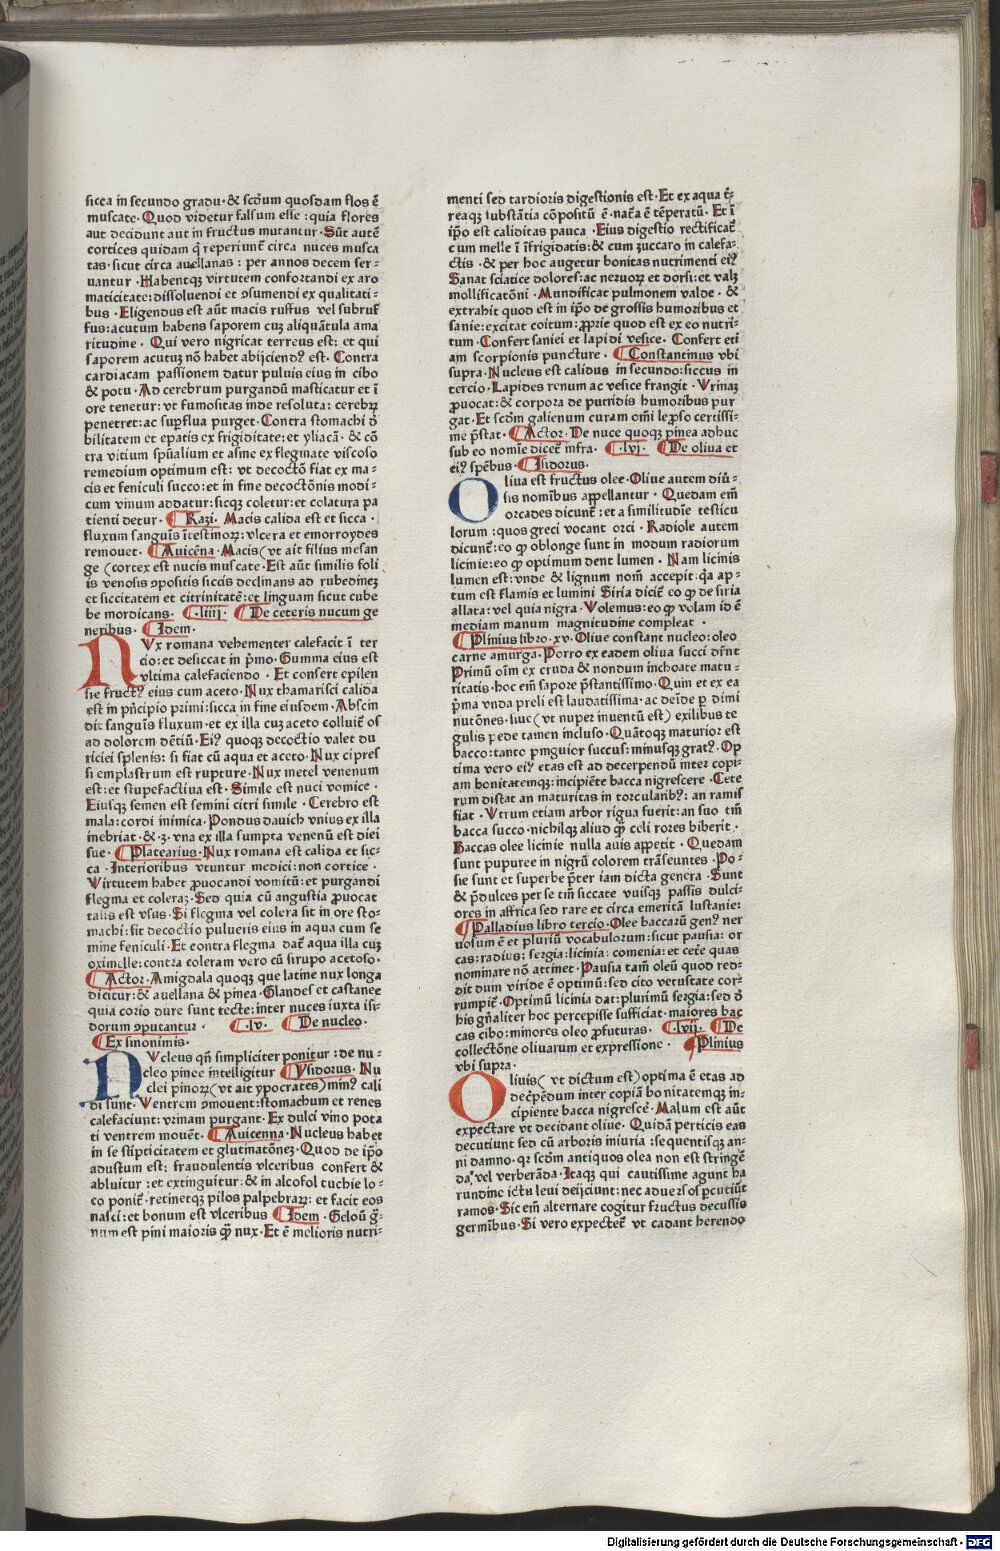 sicea in secundo gradu·& scd̄m quosdam flos ē
muscate·Quod videtur falsum esse:quia flores
aut decidunt aut in fructus mutantur·Sūt autē
cortices quidam q̄ reperiunt̄ circa nuces musca
tas·sicut circa auellanas: per annos decem ser-
uantur·Habentqꝫ virtutem confortandi ex aro
maticitate:dissoluendi et ꝯsumendi ex qualitati-
bus·Eligendus est aūt macis ruffus vel subruf
fus:acutum habens saporem cuꝫ aliquātula ama
ritudine·Qui vero nigricat terreus est: et qui
saporem acutuꝫ nō habet abijciendꝰ est·Contra
cardiacam passionem datur puluis eius in cibo
& potu·Ad cerebrum purgandū masticatur et ī
ore tenetur:vt fumositas inde resoluta: cerebꝝ
penetret:ac supflua purget·Contra stomachi d̄
bilitatem et epatis ex frigiditate:et yliacā·& cō
tra vitium spūalium et asme ex flegmate viscoso
remedium optimum est: vt decoctō fiat ex ma-
cis et feniculi succo:et in fine decoctōnis modi-
cum vinum addatur:sicqꝫ coletur:et colatura pa
tienti detur·¶Razi·Macis calida est et sicca·
fluxum sanguīs ītestinoꝝ:vlcera et emorroydes
remouet·¶Auicēna·Macis(vt ait filius mesan
ge(cortex est nucis muscate·Est aūt similis foli
is venosis ꝯpositis siccis declinans ad rubedineꝫ
et siccitatem et citrinitatē:et linguam sicut cube
be mordicans·¶·liiij·¶De ceteris nucum ge
neribus·¶Idem·
NVx romana vehementer calefacit ī ter
cio:et desiccat in p̄mo·Gumma eius est
vltima calefaciendo·Et confert epilen
sie fructꝰ eius cum aceto·Nux thamarisci calida
est in pn̄cipio primi:sicca in fine eiusdem·Abscin
dit sanguīs fluxum·et ex illa cuꝫ aceto colluit̄ os
ad dolorem dētiū·Eiꝰ quoqꝫ decoctio valet du
riciei splenis: si fiat cū aqua et aceto·Nux cipres
si emplastrum est rupture·Nux metel venenum
est:et stupefactiua est·Simile est nuci vomice·
Eiusqꝫ semen est semini citri simile·Cerebro est
mala:cordi inimica·Pondus dauich vnius ex illa
inebriat·&·ʒ·vna ex illa sumpta venenū est diei
sue·¶Platearius·Nux romana est calida et sic-
ca·Interioribus vtuntur medici:non cortice·
Virtutem habet ꝓuocandi vomitū:et purgandi
flegma et coleraꝫ·Sed quia cū angustia ꝓuocat
talis est vsus·Si flegma vel colera sit in ore sto-
machi:fit decoctio pulueris eius in aqua cum se
mine feniculi·Et contra flegma dat̄ aqua illa cuꝫ
oximelle:contra coleram vero cū sirupo acetoso·
¶Actor·Amigdala quoqꝫ que latine nux longa
dicitur:& auellana & pinea·Glandes et castanee
quia corio dure sunt tecte:inter nuces iuxta isi-
dorum ꝯputantur·¶·lv·¶De nucleo·
¶Ex sinonimis·
NVcleus qn̄ simpliciter ponitur:de nu-
cleo pinee intelligitur¶Ysidorus·Nu
clei pinoꝝ(vt ait ypocrates)minꝰ cali
di sunt·Ventrem ꝯmouent:stomachum et renes
calefaciunt:vrinam purgant·Ex dulci vino pota
ti ventrem mouēt·¶Auicenna·Nucleus habet
in se stipticitatem et glutinatōneꝫ·Quod de ip̄o
adustum est: fraudulentis vlceribus confert &
abluitur:et extinguitur:& in alcofol tuchie lo-
co ponit̄·retinetqꝫ pilos palpebraꝝ:et facit eos
nasci:et bonum est vlceribus¶Idem·Geloū ḡ-
num est pini maioris q̄ꝫ nux·Et ē melioris nutri-
menti sed tardioris digestionis est·Et ex aqua t̄-
reaqꝫ substātia cōpositū ē·nat̄a ē tēperatū·Et ī
ip̄o est caliditas pauca·Eius digestio rectificat̄
cum melle ī īfrigidatis:& cum zuccaro in calefa-
ctis·& per hoc augetur bonitas nutrimenti eiꝰ
Sanat sciatice dolores:ac neruoꝝ et dorsi:et valꝫ
mollificatōni·Mundificat pulmonem valde·&
extrahit quod est in ip̄o de grossis humoribus et
sanie:excitat coitum:ꝓprie quod est ex eo nutri-
tum·Confert saniei et lapidi vesice·Confert eti
am scorpionis puncture·¶Constantinus vbi
supra·Nucleus est calidus in secundo:siccus in
tercio·Lapides renum ac vesice frangit·Vrinaꝫ
ꝓuocat:& corpora de putridis humoribus pur
gat·Et scd̄m galienum curam om̄i leꝓso certissi-
me p̄stat·¶Actor·De nuce quoqꝫ pinea adhuc
sub eo nomīe dicet̄ infra·¶·lvj·¶De oliua et
eiꝰ spēbus·¶Isidorus·
Oliua est fructus olee·Oliue autem diū-
sis nomībus appellantur·Quedam em̄
orcades dicunt̄:et a similitudīe testicu
lorum:quos greci vocant orci·Radiole autem
dicunt̄:eo ꝙ oblonge sunt in modum radiorum
licinie:eo ꝙ optimum dent lumen·Nam licinis
lumen est:vnde & lignum nom̄ accepit:q̄a ap-
tum est flamis et lumini Siria dicit̄ eo ꝙ de siria
allata:vel quia nigra·Volemus:eo ꝙ volam id ē
mediam manum magnitudine compleat·
¶Plinius libro·xv·Oliue constant nucleo:oleo
carne amurga·Porro ex eadem oliua succi dr̄nt
Primū oīm ex cruda & nondum inchoate matu-
ritatis·hoc em̄ sapore p̄stantissimo·Quin et ex ea
p̄ma vnda preli est laudatissima·ac deīde ꝑ dimi
nutōnes·siue(vt nuper inuentū est)exilibus te
gulis pede tamen incluso·Quātoqꝫ maturior est
bacco:tanto pinguior succus:minusqꝫ gratꝰ·Op
tima vero eiꝰ etas est ad decerpendū inter copi-
am bonitatemqꝫ:incipiēte bacca nigrescere·Cete
rum distat an maturitas in torcularibꝰ: an ramis
fiat·Vtrum etiam arbor rigua fuerit:an suo tm̄
bacca succo·nichilqꝫ aliud q̄ꝫ celi rores biberit·
Baccas olee licinie nulla auis appetit·Quedam
sunt pupuree in nigrū colorem trāseuntes·Po-
sie sunt et superbe p̄ter iam dicta genera·Sunt
& p̄dulces per se tm̄ siccate vuisqꝫ passis dulci-
ores in affrica sed rare et circa emeritā lustanie:
¶Palladius libro tercio·Olee baccarū genꝰ ner
uosum ē et pluriū vocabulorum:sicut pausia: or
cas:radius: sergia:licinia: comenia:et cet̄e quas
nominare nō attinet·Pausia tam̄ oleū quod red-
dit dum viride ē optimū:sed cito vetustate cor-
rumpit̄·Optimū licinia dat:plurimū sergia:sed d̄
his gn̄aliter hoc percepisse sufficiat·maiores bac
cas cibo:minores oleo ꝓfuturas·¶·lvij·¶De
collectōne oliuarum et expressione·¶Plinius
vbi supra·
Oliuis(vt dictum est)optima ē etas ad
decꝑendum inter copiā bonitatemqꝫ in-
cipiente bacca nigresce̅·Malum est aūt
expectare vt decidant oliue·Quidā perticis eas
decutiunt sed cū arboris iniuria:sequentisqꝫ an-
ni damno·qꝛ scd̄m antiquos olea non est stringē
da·vel verberāda·Itaqꝫ qui cautissime agunt ha
rundine ictu leui deijciunt:nec aduersos ꝑcutiūt
ramos·Sic em̄ alternare cogitur fructus decussis
germībus·Si vero expectet̄ vt cadant herendo
Digitalisierung gefördert durch die Deutsche Forschungsgemeinschaft - DFG